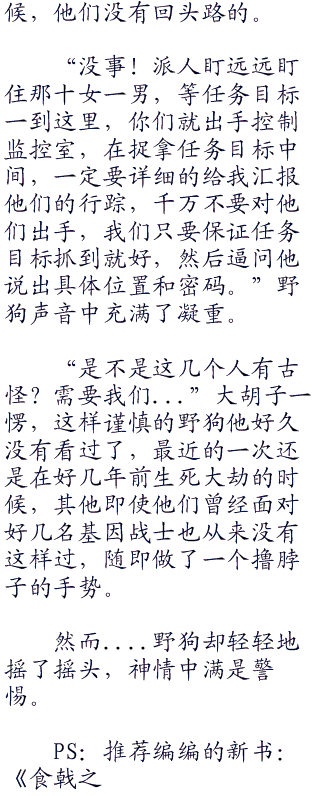 候，他们没有回头路的。
“没事！派人盯远远盯
住那十女一男，等任务目标
一到这里，你们就出手控制
监控室，在捉拿任务目标中
间，一定要详细的给我汇报
他们的行踪，千万不要对他
们出手，我们只要保证任务
目标抓到就好，然后逼问他
说出具体位置和密码。”野
狗声音中充满了凝重。
“是不是这几个人有古
怪？需要我们...”大胡子一
愣，这样谨慎的野狗他好久
没有看过了，最近的一次还
是在好几年前生死大劫的时
候，其他即使他们曾经面对
好几名基因战士也从来没有
这样过，随即做了一个撸脖
子的手势。
然而....野狗却轻轻地
摇了摇头，神情中满是警
惕。
PS：推荐编编的新书：
《食戟之